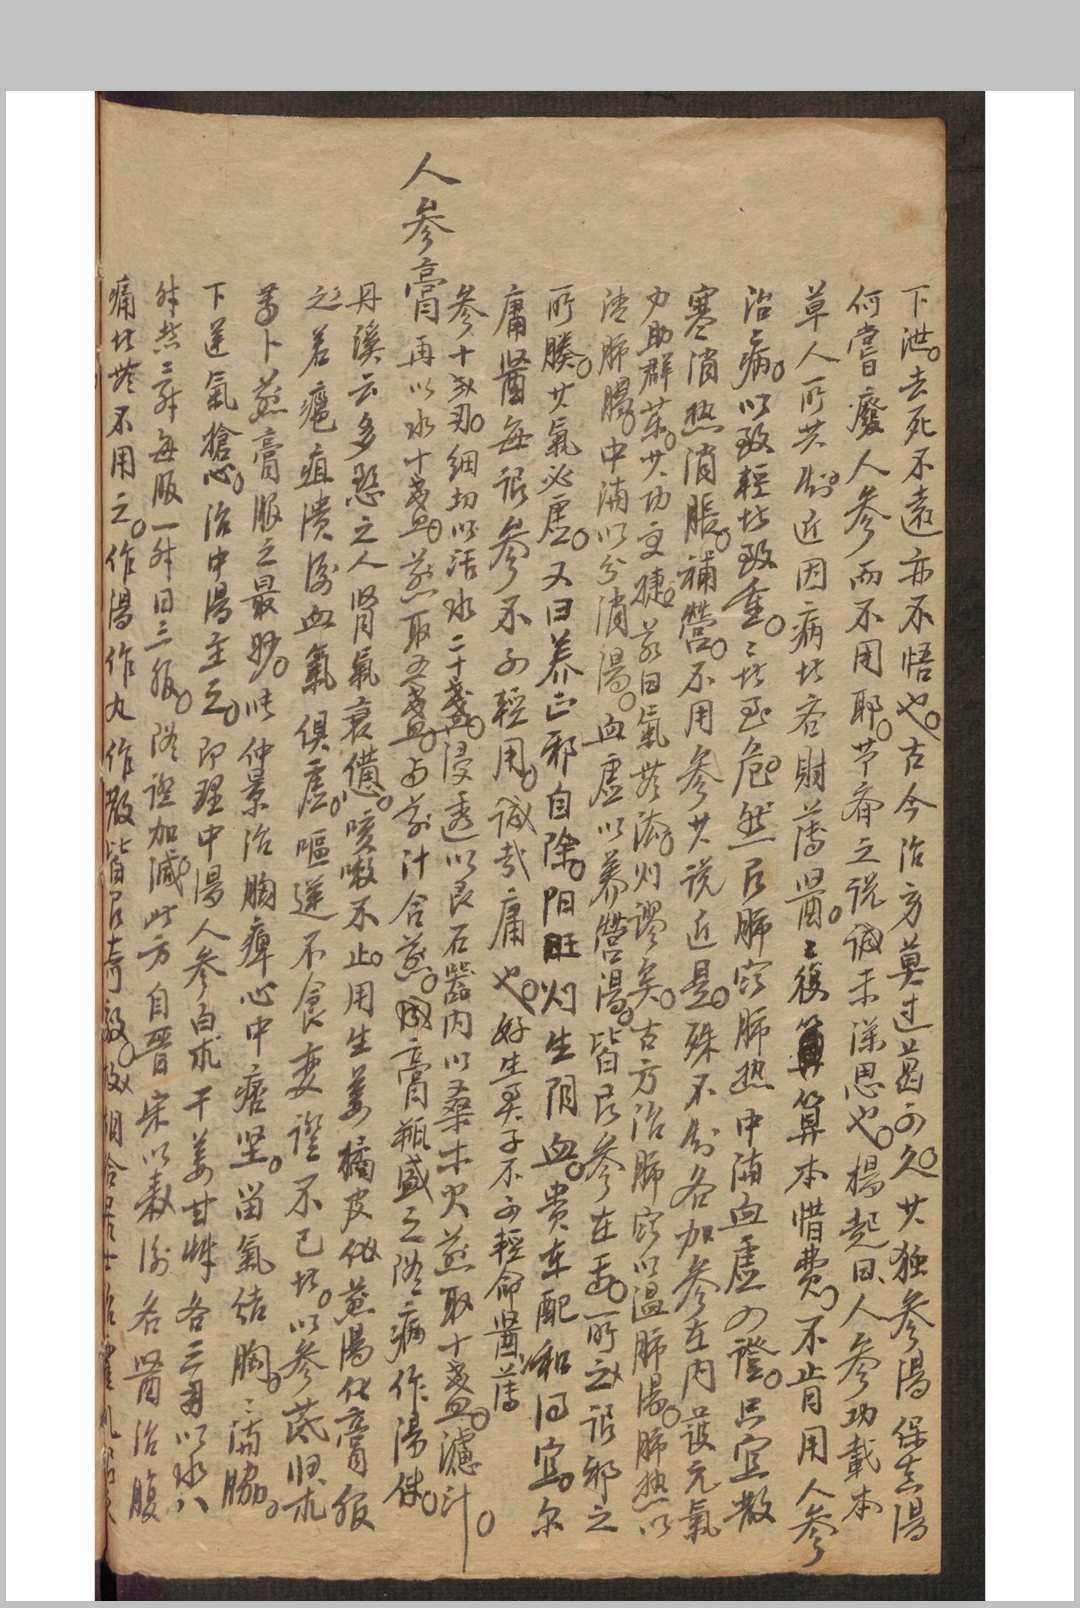 下泄。去死不遠亦不悟也。古今治方莫过益可久。其独参湯保真湯
何嘗癈人參而不用耶。节斋之说誠未深思也。楊起曰人參功載本
草人所共知。近因病者吝財薄醫。醫復算本惜費。不肯用人參
治病。以致輕者致重。重者至危。然有肺寒肺热中满血虚之證。只宜散
寒消热消脹。補營。不用參其说近是。殊不知各加參在内護元氣
力助群葯。其功更捷。若曰氣無補法。則謬矣。古方治肺寒以温肺湯。肺热以
清肺湯。中滿以分消湯。血虚以養營湯。皆有參在焉。所以谓邪之
所腠。其氣必虚。又曰养正邪自除。阳旺則生阴血。贵在配和得宜。尔
庸醫每谓參不可輕用。诚哉庸也。好生君子不可輕命醫薄
人参膏
參十二兩。细切以活水二十盞。浸透以良石器内以桑木火煎取十盞。濾汁。
再以水十盞。煎取五盞。与前汁合煎。成膏瓶盛之隨病作湯使。
丹溪云多慾之人腎氣衰憊。咳嗽不止。用生姜橘皮煎湯化膏服
之。若癰疽潰後血氣俱虚。嘔逆不食变證不已者。以參芪归朮
等卜煎膏服之最妙。此仲景治胸痺心中痞坚。留氣结胸。胸满脇
下逆氣搶心。治中湯主之。即理中湯人參白朮干姜甘艸各三兩以水八
升煮三升每服一升日三服。隨證加减。此方自晋宋以来後各醫治腹
痛者無不用之。作湯作丸作散皆有奇效。